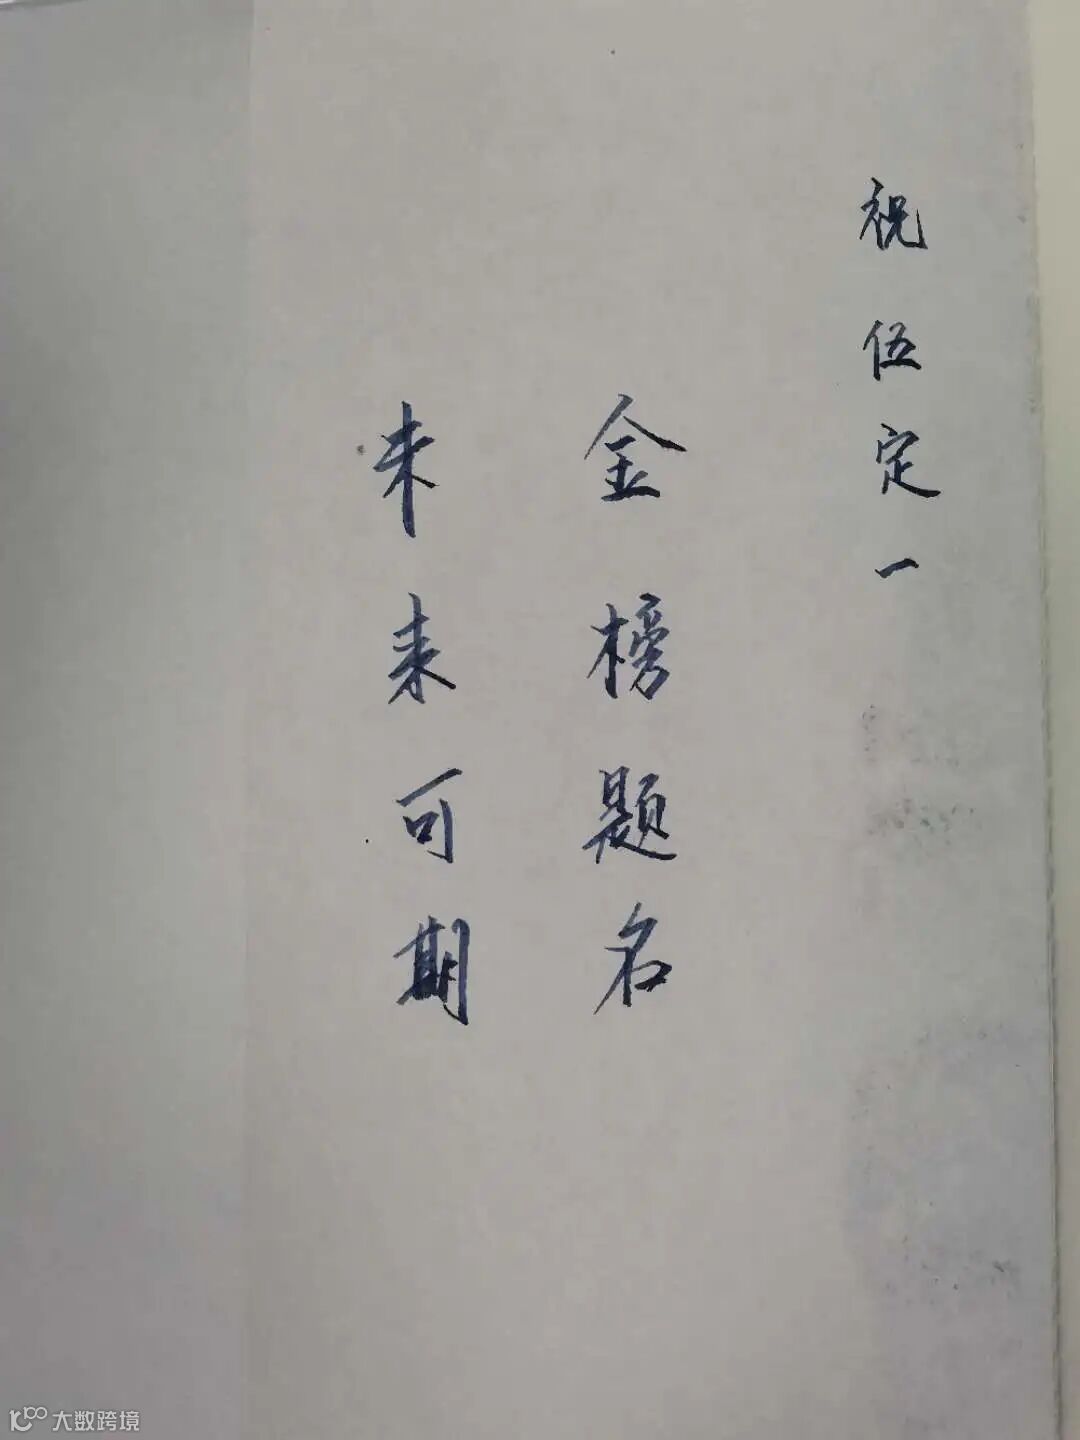 祝伍定一
金榜题名
未来可期
大数跨境